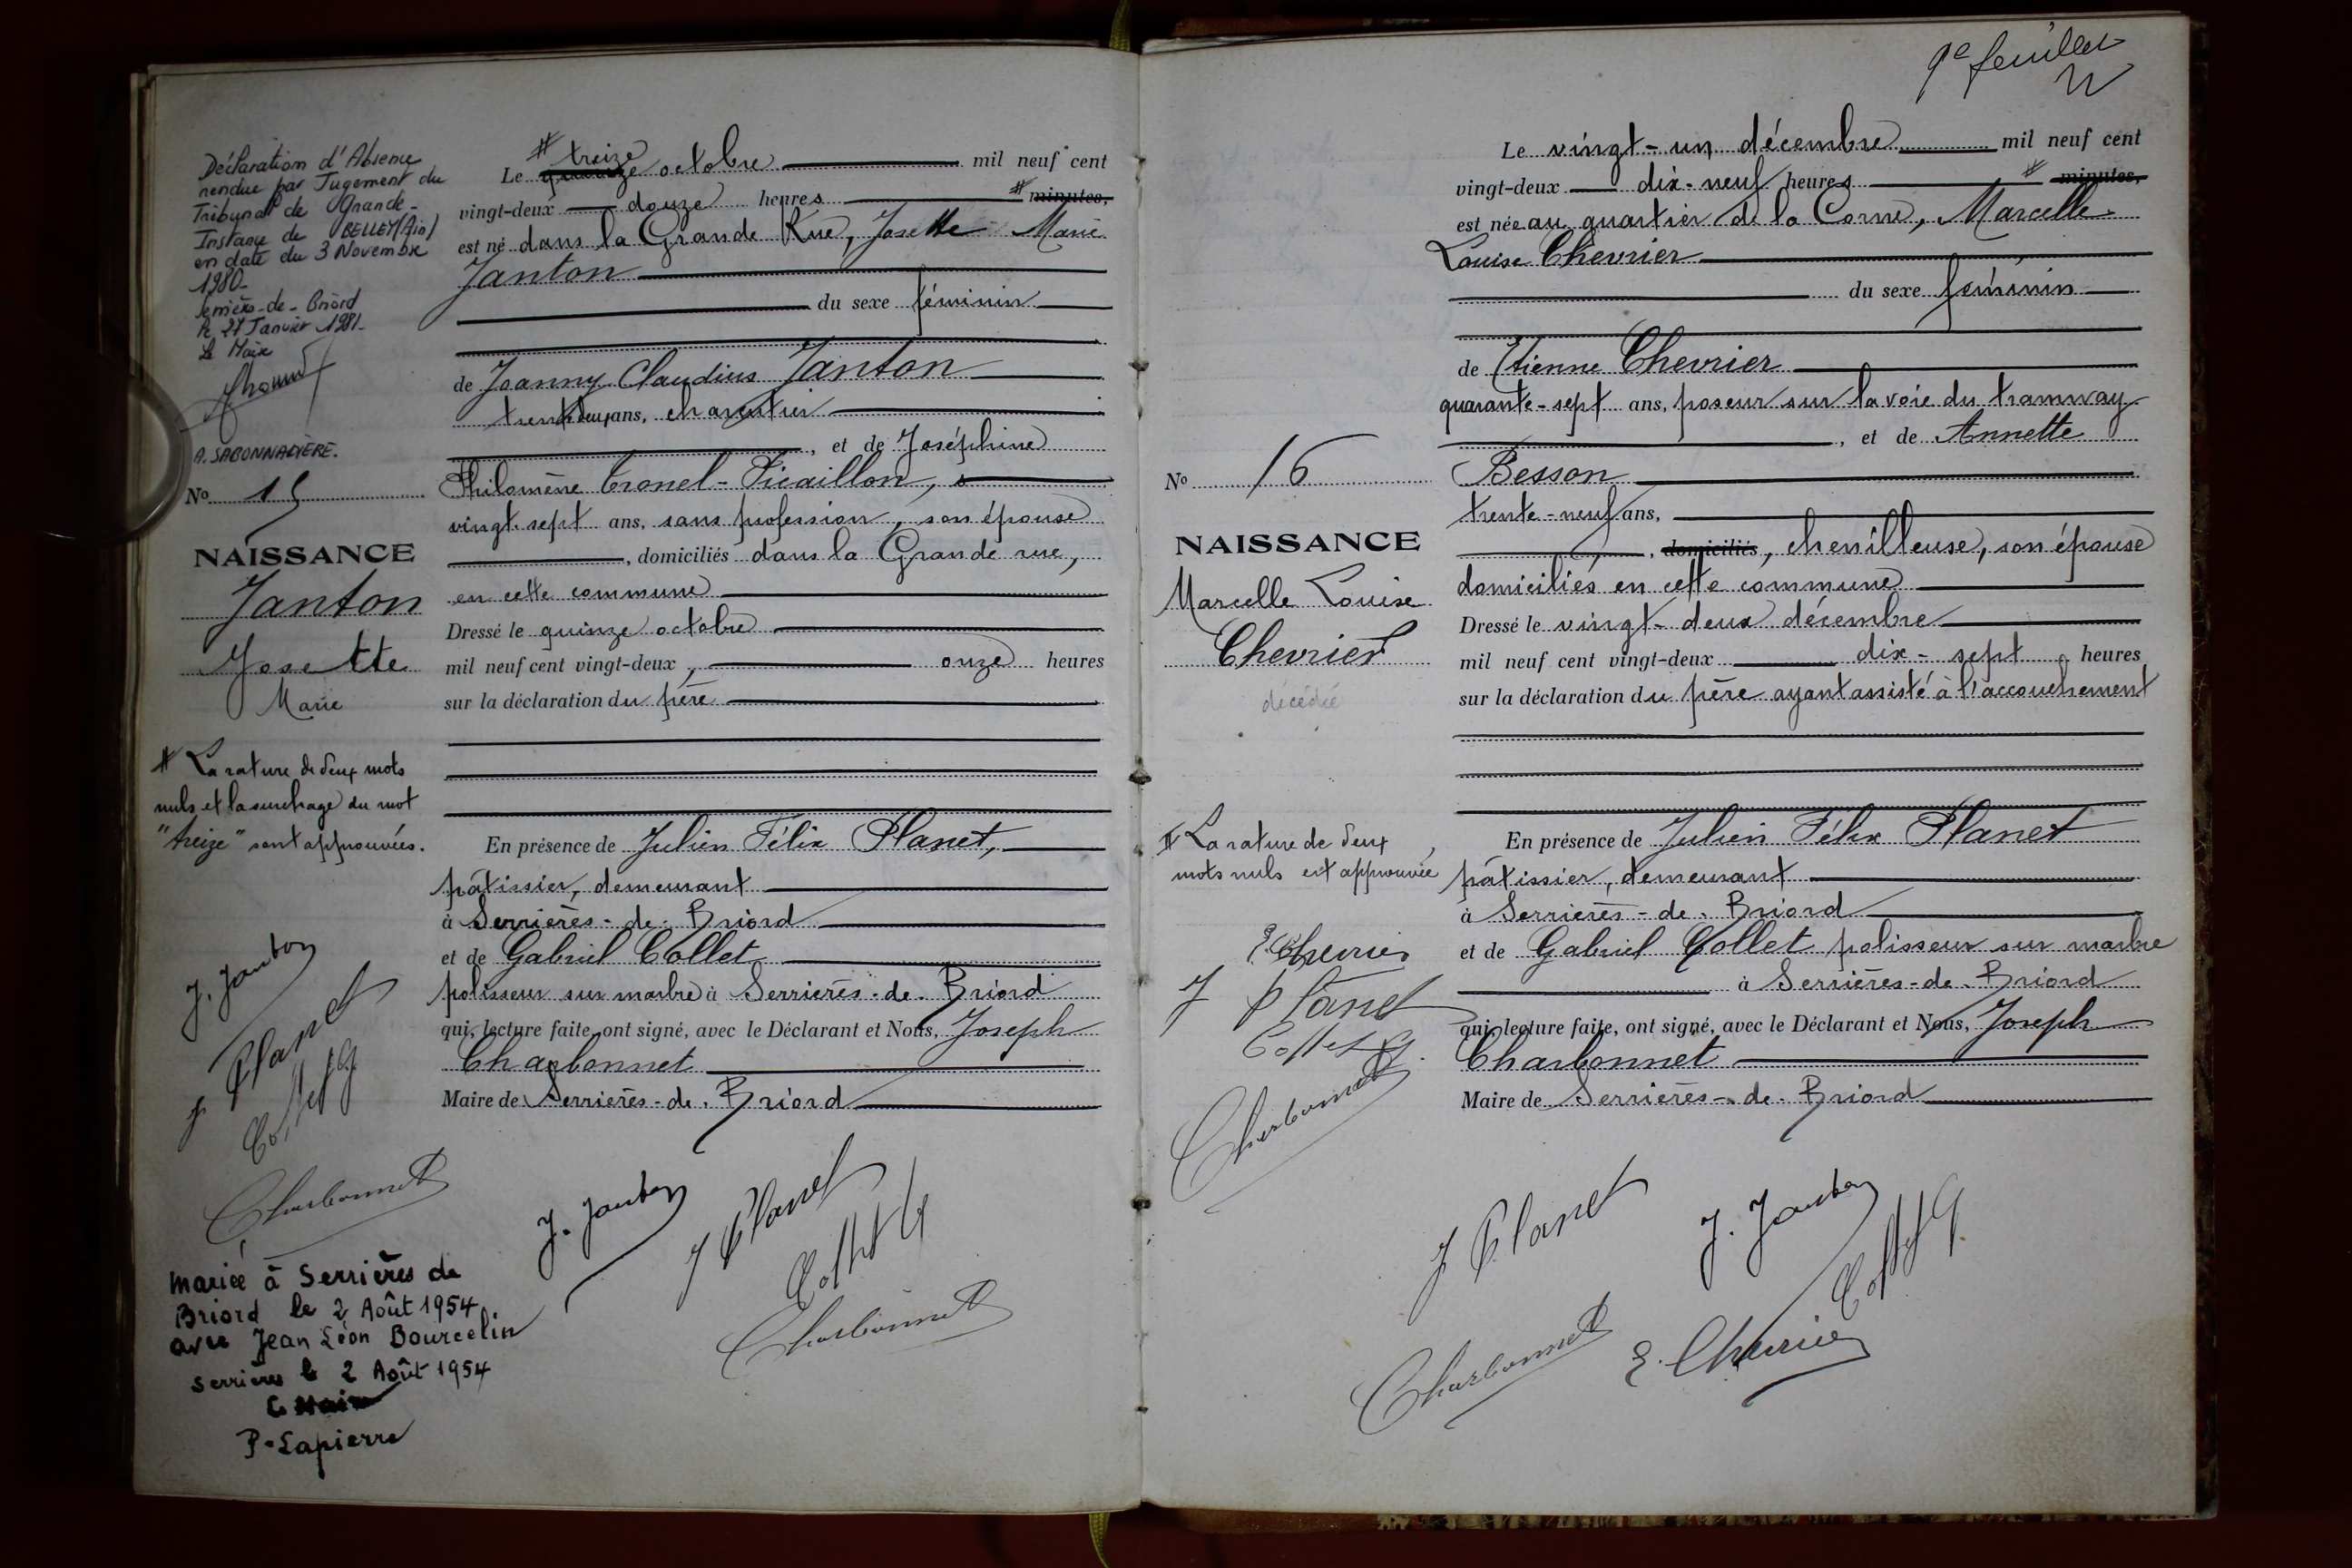 Déclaration d'Absence
rendue par Jugement du
Tribunal de Grande-
Instance de BELLEY (Ain)
en date du 3 Novembre
1980-
Serrières-de-Briord
le 27 Janvier 1981-
Le Maire
A. SABONNADIÈRE.
No 15
NAISSANCE
Janton
Josette
Marie
# La rature de deux mots
nuls et la surcharge du mot
"treize" sont approuvées.
J. Janton
J Planet
Collet G
Charbonnet
mariée à Serrières de
Briord le 2 Août 1954
avec Jean Léon Bourcelin
Serrières le 2 Août 1954
Le Maire
P. Lapierre
# treize
Le octobre mil neuf cent
vingt-deux douze heures # minutes,
est né dans la Grande Rue, Josette Marie
Janton
du sexe féminin
de Joanny Claudius Janton
trente deux ans, charpentier
, et de Joséphine
Philomène Cronel-Picaillon,
vingt-sept ans, sans profession, son épouse
, domiciliés dans la Grande rue,
en cette commune
Dressé le quinze octobre
mil neuf cent vingt-deux, onze heures
sur la déclaration du père
En présence de Julien Félix Planet,
pâtissier, demeurant
à Serrières-de-Briord
et de Gabriel Collet
polisseur sur marbre à Serrières-de-Briord
qui, lecture faite, ont signé, avec le Déclarant et Nous, Joseph
Charbonnet
Maire de Serrières-de-Briord
J. Janton
J Planet
Collet G
Charbonnet
9e feuillet
No 16
NAISSANCE
Marcelle Louise
Chevrier
décédée
# La rature de deux
mots nuls est approuvée
E Chevrier
J Planet
Collet G.
Charbonnet
Le vingt-un décembre mil neuf cent
vingt-deux dix-neuf heures # minutes,
est née au quartier de la Corne, Marcelle
Louise Chevrier
du sexe féminin
de Etienne Chevrier
quarante-sept ans, poseur sur la voie du tramway
, et de Annette
Besson
trente-neuf ans,
, domiciliés, chenilleuse, son épouse
domiciliés en cette commune
Dressé le vingt-deux décembre
mil neuf cent vingt-deux dix-sept heures
sur la déclaration du père ayant assisté à l'accouchement
En présence de Julien Félix Planet
pâtissier, demeurant
à Serrières-de-Briord
et de Gabriel Collet polisseur sur marbre
à Serrières-de-Briord
qui, lecture faite, ont signé, avec le Déclarant et Nous, Joseph
Charbonnet
Maire de Serrières-de-Briord
J Planet
J. Janton
Collet G
Charbonnet
E. Chevrier